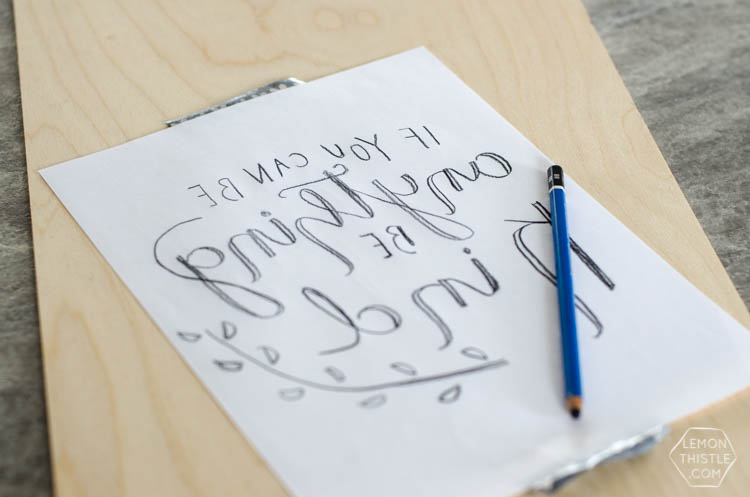 IF YOU CAN BE
anything
BE
Kind
LEMON
THISTLE
.COM